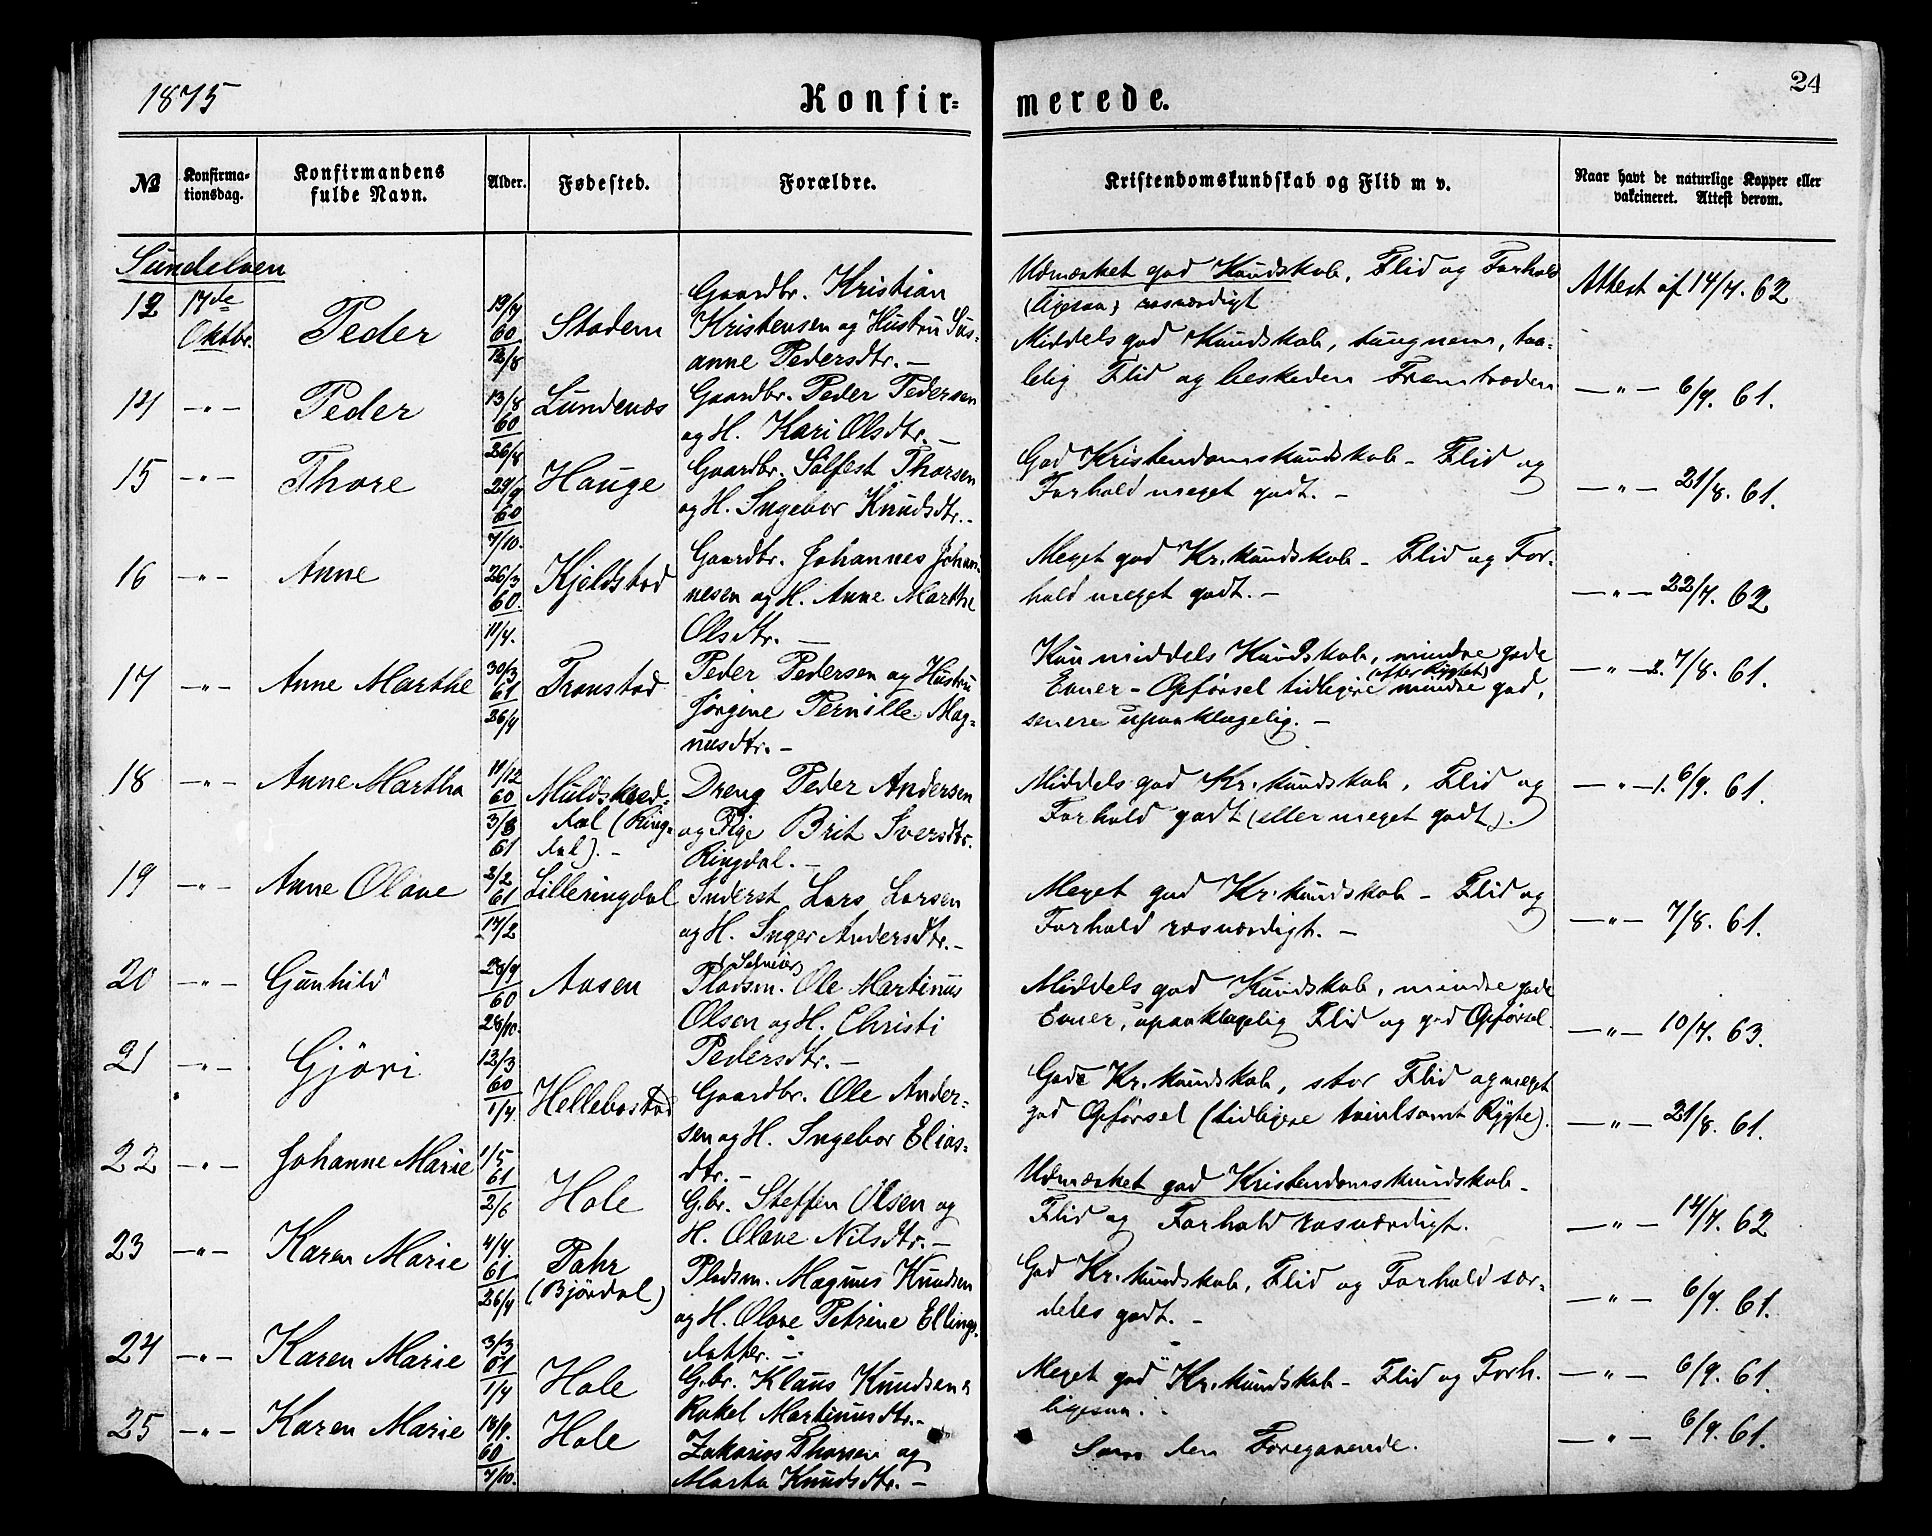 1875
Konfir=
merede.
24
№
Konfirma-
tionsdag.
Konfirmandens
fulde Navn.
Alder.
Fødested.
Forældre.
Kristendomskundskab og Flid m v.
Naar havt de naturlige Kopper eller
vakcineret. Attest derom.
Sundelven
12 17de Oktbr. Peder 19/7 60 12/8 Stadem
Gaardbr. Kristian
Kristensen og Hustru Sus-
anne Pedersdtr. –
Udmærket god Kundskab, Flid og Forhold
(ligesaa) rosværdigt
Attest af 14/7. 62
14 –"– Peder 13/8 60 26/8 Lundenæs
Gaardbr. Peder Pedersen
og H. Kari Olsdtr. –
Middels god Kundskab, tungnem, taa-
lelig Flid og beskeden Fremtræden
–"– 6/9. 61.
15 –"– Thore 29/9 60 7/10. Hauge
Gaardbr. Sølfest Thorsen
og H. Ingebor Knudsdtr. –
God Kristendomskundskab – Flid og
Forhold meget godt. –
–"– 21/8. 61.
16 –"– Anne 26/3 60. 11/4. Kjeldstad
Gaardbr. Johannes Johan-
nesen og H. Anne Marthe
Olsdtr. –
Meget god Kr.kundskab – Flid og For-
hold meget godt. –
–"– 22/7. 62
17 –"– Anne Marthe 30/3 61 26/4 Tronstad
Peder Pedersen og Hustru
Jørgine Pernille Mag-
nusdtr. –
Kun middels Kundskab, mindre gode
Evner – Opførsel tidligere (efter Rygtet) mindre god,
senere upaaklagelig. –
–"– 2. 7/8. 61.
18 –"– Anne Martha 11/12 60 3/8 61 Muldskred-
dal (Ring-
dal). –
Dreng Peder Andersen
og Pige Brit Iversdtr.
Ringdal. –
Middels god Kr.kundskab, Flid og
Forhold godt (eller meget godt).
–"– 1. 6/9. 61.
19 –"– Anne Olave 2/2 61 17/2 Lilleringdal
Inderst Lars Larsen
og H. Inger Andersdtr. –
Meget god Kr.kundskab – Flid og
Forhold rosværdigt. –
–"– 7/8. 61.
20 –"– Gunhild 28/9 60 28/10. Aasen
Pladsm. Ole Martinus
Olsen og H. Christi
Pedersdtr. –
Middels god Kundskab, mindre gode
Evner, upaaklagelig Flid og god Opførsel
–"– 10/7. 63.
21 –"– Gjöri 12/3 60 1/4. Hellebostad
Gaardbr. Ole Ander-
sen og H. Ingebor Elias-
dtr. –
Gode Kr.kundskab, stor Flid og meget
god Opførsel (tidligere tvivlsomt Rygte).
–"– 21/8. 61.
22 –"– Johanne Marie 1/5 61 2/6 Hole
G.br. Steffen Olsen og
H. Olave Nilsdtr. –
Udmærket god Kristendomskundskab –
Flid og Forhold rosværdigt.
–"– 14/7. 62
23 –"– Karen Marie 4/4. 61 26/4
(Bjørdal)
Pladsm. Magnus Knudsen
og H. Olave Petrine Ellings-
datter. –
God Kr.kundskab, Flid og Forhold sær-
deles godt. –
–"– 6/9. 61.
24 –"– Karen Marie 3/3 61 1/4 Hole
G.br. Klaus Knudsen &
Rakel Martinusdtr. –
Meget god Kr.kundskab – Flid og Forh.
ligesaa.
–"– 6/9. 61.
25 –"– Karen Marie 18/9. 60 7/10. Hole
Zakarias Thorsen og
Marta Knudsdtr. –
Som den Foregaaende.
–"– 6/9. 61.